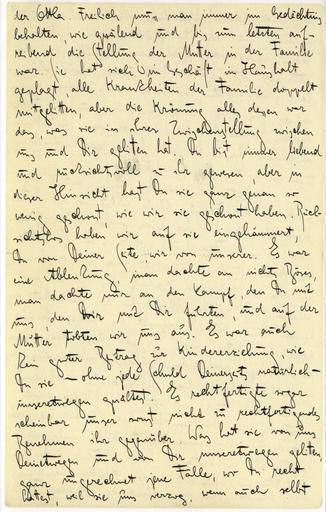 der Ottla. Freilich muss man immer im Gedächtnis
behalten, wie quälend und bis zum letzten auf-
reibend die Stellung der Mutter in der Familie
war. Sie hat sich im Geschäft, im Haushalt
geplagt, alle Krankheiten der Familie doppelt
mitgelitten, aber die Krönung alles dessen war
das, was sie in ihrer Zwischenstellung zwischen
uns und Dir gelitten hat. Du bist immer liebend
und rücksichtsvoll zu ihr gewesen, aber in
dieser Hinsicht hast Du sie ganz genau so
wenig geschont, wie wir sie geschont haben. Rück-
sichtslos haben wir auf sie eingehämmert,
Du von Deiner Seite, wir von unserer. Es war
eine Ablenkung, man dachte an nichts Böses,
man dachte nur an den Kampf, den Du mit
uns, den wir mit Dir führten, und auf der
Mutter tobten wir uns aus. Es war auch
kein guter Beitrag zur Kindererziehung, wie
Du sie – ohne jede Schuld Deinerseits natürlich –
unseretwegen quältest. Es rechtfertigte sogar
scheinbar unser sonst nicht zu rechtfertigendes
Benehmen ihr gegenüber. Was hat sie von uns
Deinetwegen und von Dir unseretwegen gelitten,
ganz ungerechnet jene Fälle, wo Du recht
hattest, weil sie uns verzog, wenn auch selbst